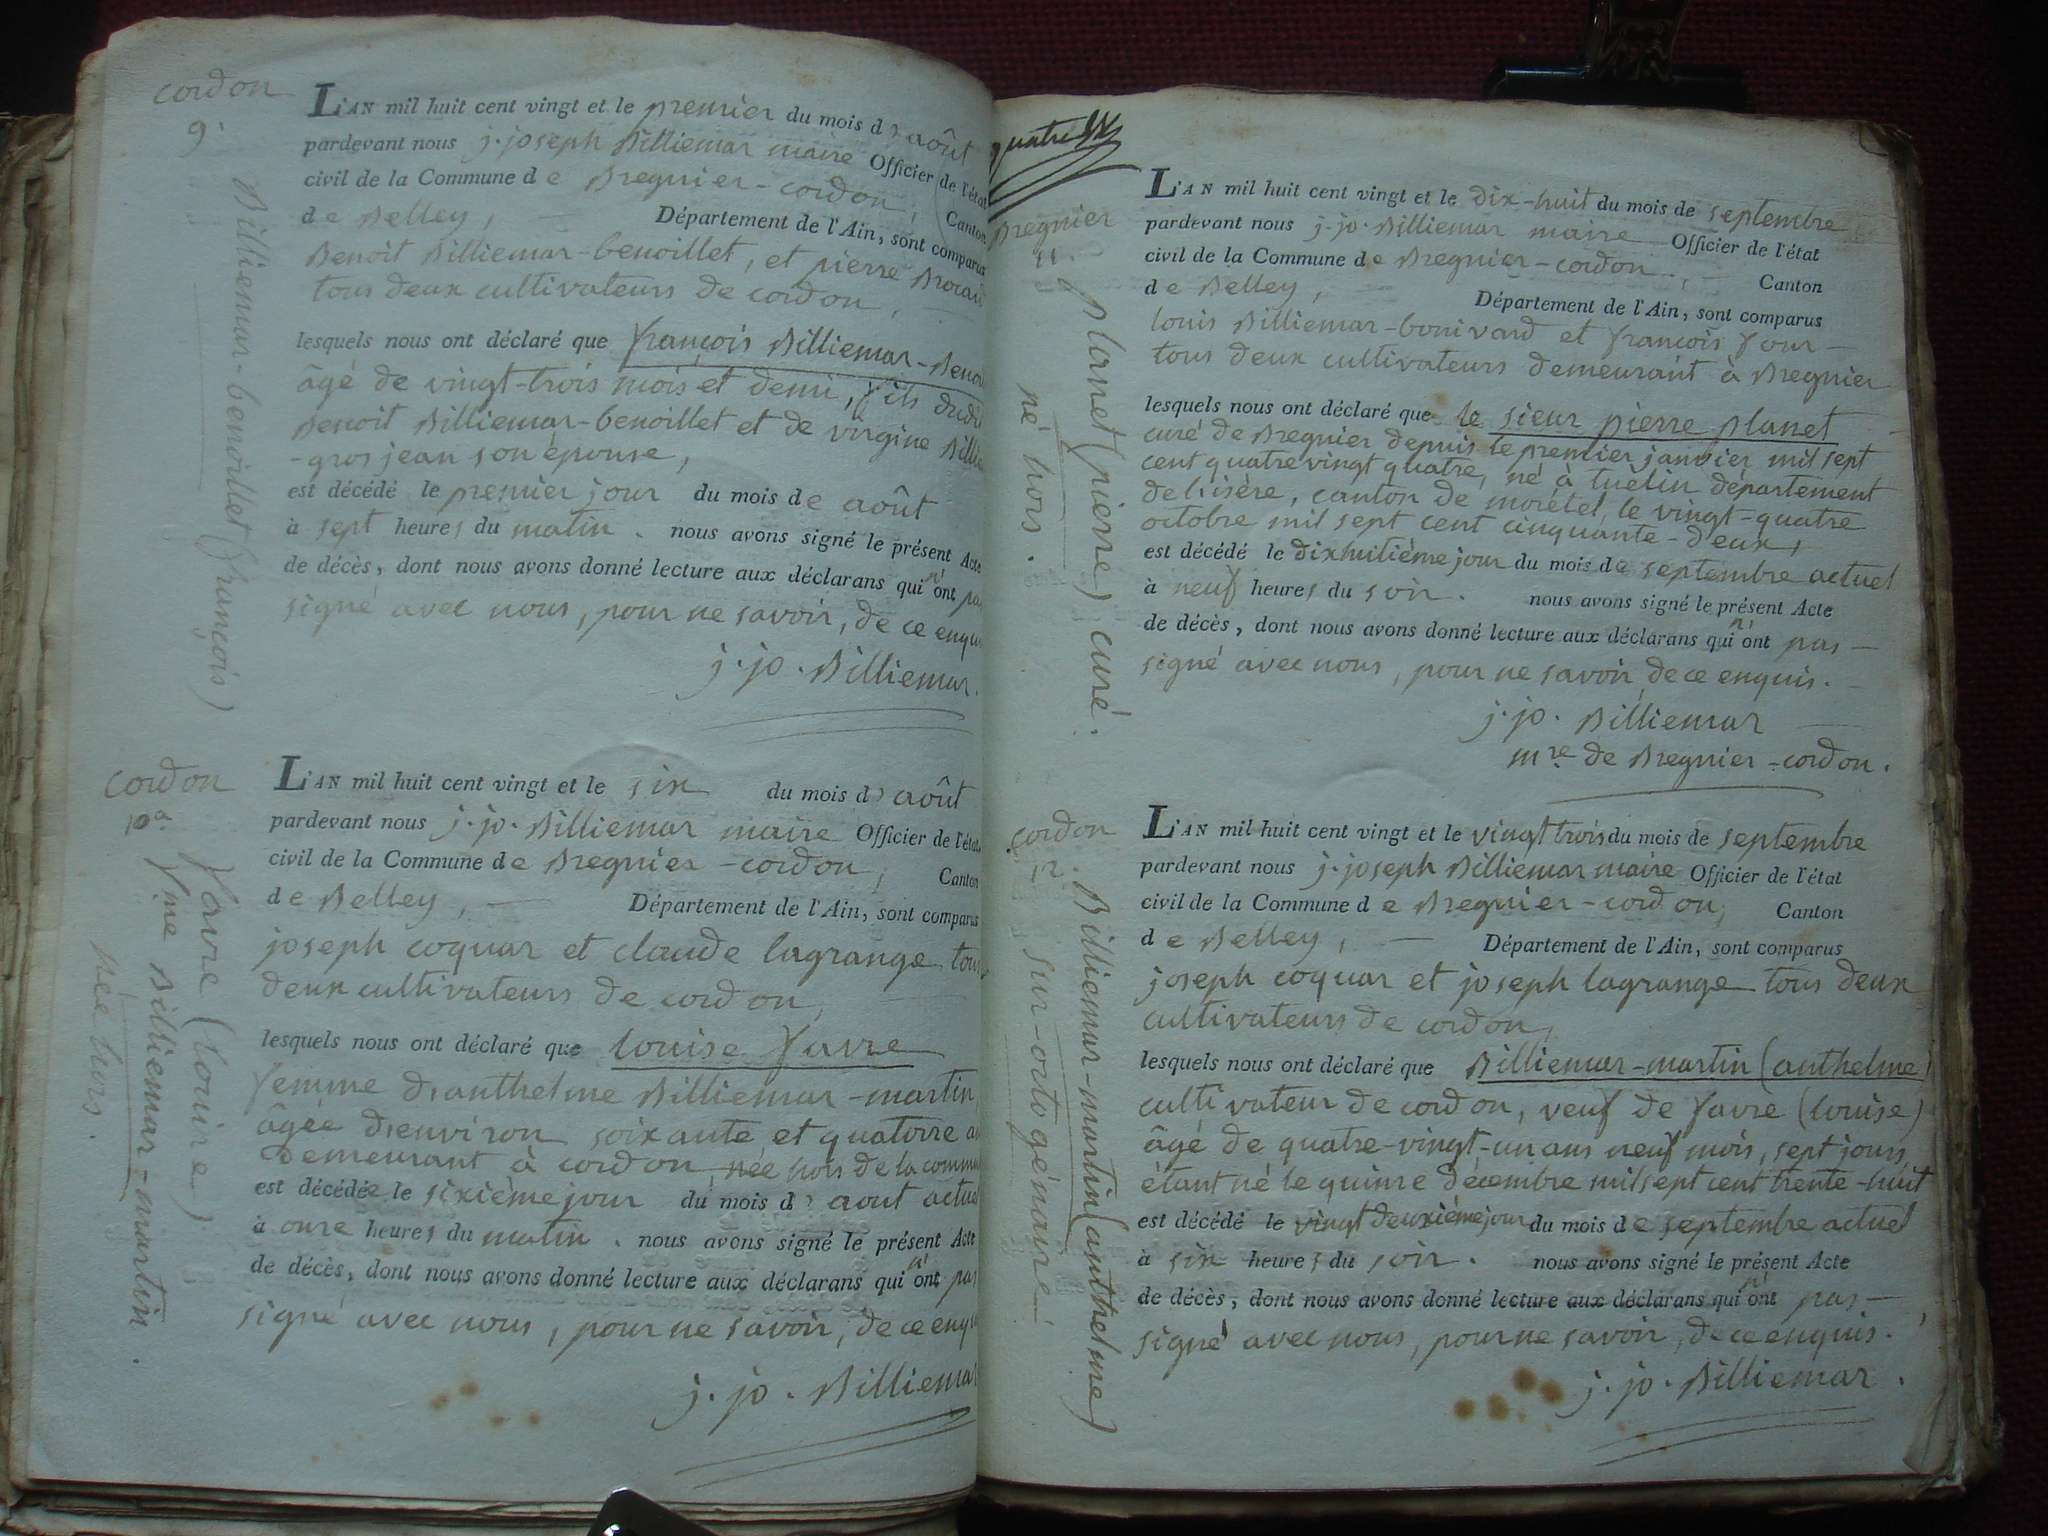 cordon
9
Billiemar-benoillet (françois)
L'AN mil huit cent vingt et le premier du mois d' août
pardevant nous j. joseph Billiemar maire Officier de l'état
civil de la Commune de Bregnier-cordon, Canton
de Belley, Département de l'Ain, sont comparus
Benoit Billiemar-benoillet, et pierre
tous deux cultivateurs de cordon,
lesquels nous ont déclaré que françois Billiemar-Beno
âgé de vingt-trois mois et demi, fils dudit
Benoit Billiemar-benoillet et de virgine Billie
-grosjean son épouse,
est décédé le premier jour du mois de août
à sept heures du matin. nous avons signé le présent Acte
de décès, dont nous avons donné lecture aux déclarans qui n'ont pas
signé avec nous, pour ne savoir, de ce enqui
j. jo. Billiemar.
cordon
10
favre (louise)
fme Billiemar-martin.
née hors.
L'AN mil huit cent vingt et le six du mois d' août
pardevant nous j. jo. Billiemar maire Officier de l'état
civil de la Commune de Bregnier-cordon, Canton
de Belley, Département de l'Ain, sont comparus
joseph coquar et claude lagrange tous
deux cultivateurs de cordon,
lesquels nous ont déclaré que louise favre
femme d'anthelme Billiemar-martin,
âgée d'environ soixante et quatorze a
demeurant à cordon née hors de la commu
est décédée le sixième jour du mois d' aout actuel
à onze heures du matin. nous avons signé le présent Acte
de décès, dont nous avons donné lecture aux déclarans qui n'ont pas
signé avec nous, pour ne savoir, de ce enqu
j. jo. Billiemar
quatre
Bregnier
11.
planet (pierre) curé.
né hors.
L'AN mil huit cent vingt et le dix-huit du mois de septembre
pardevant nous j. jo. Billiemar maire Officier de l'état
civil de la Commune de Bregnier-cordon, Canton
de Belley, Département de l'Ain, sont comparus
louis Billiemar-bonivard et françois four
tous deux cultivateurs demeurant à Bregnier
lesquels nous ont déclaré que le sieur pierre planet
curé de Bregnier depuis le premier janvier mil sept
cent quatre vingt quatre, né à tuelin département
de lisère, canton de morétel, le vingt-quatre
octobre mil sept cent cinquante-deux,
est décédé le dixhuitième jour du mois de septembre actuel
à neuf heures du soir. nous avons signé le présent Acte
de décès, dont nous avons donné lecture aux déclarans qui n'ont pas
signé avec nous, pour ne savoir, de ce enquis.
j. jo. Billiemar
mre de Bregnier-cordon.
cordon
12.
Billiemar-martin (anthelme)
sur-octogénaire
L'AN mil huit cent vingt et le vingt trois du mois de septembre
pardevant nous j. joseph Billiemar maire Officier de l'état
civil de la Commune de Bregnier-cordon, Canton
de Belley, Département de l'Ain, sont comparus
joseph coquar et joseph lagrange tous deux
cultivateurs de cordon,
lesquels nous ont déclaré que Billiemar-martin (anthelme)
cultivateur de cordon, veuf de favre (louise)
âgé de quatre-vingt-un ans neuf mois, sept jours,
étant né le quinze décembre mil sept cent trente-huit
est décédé le vingt deuxième jour du mois de septembre actuel
à six heures du soir. nous avons signé le présent Acte
de décès, dont nous avons donné lecture aux déclarans qui n'ont pas
signé avec nous, pour ne savoir, de ce enquis.
j. jo. Billiemar.